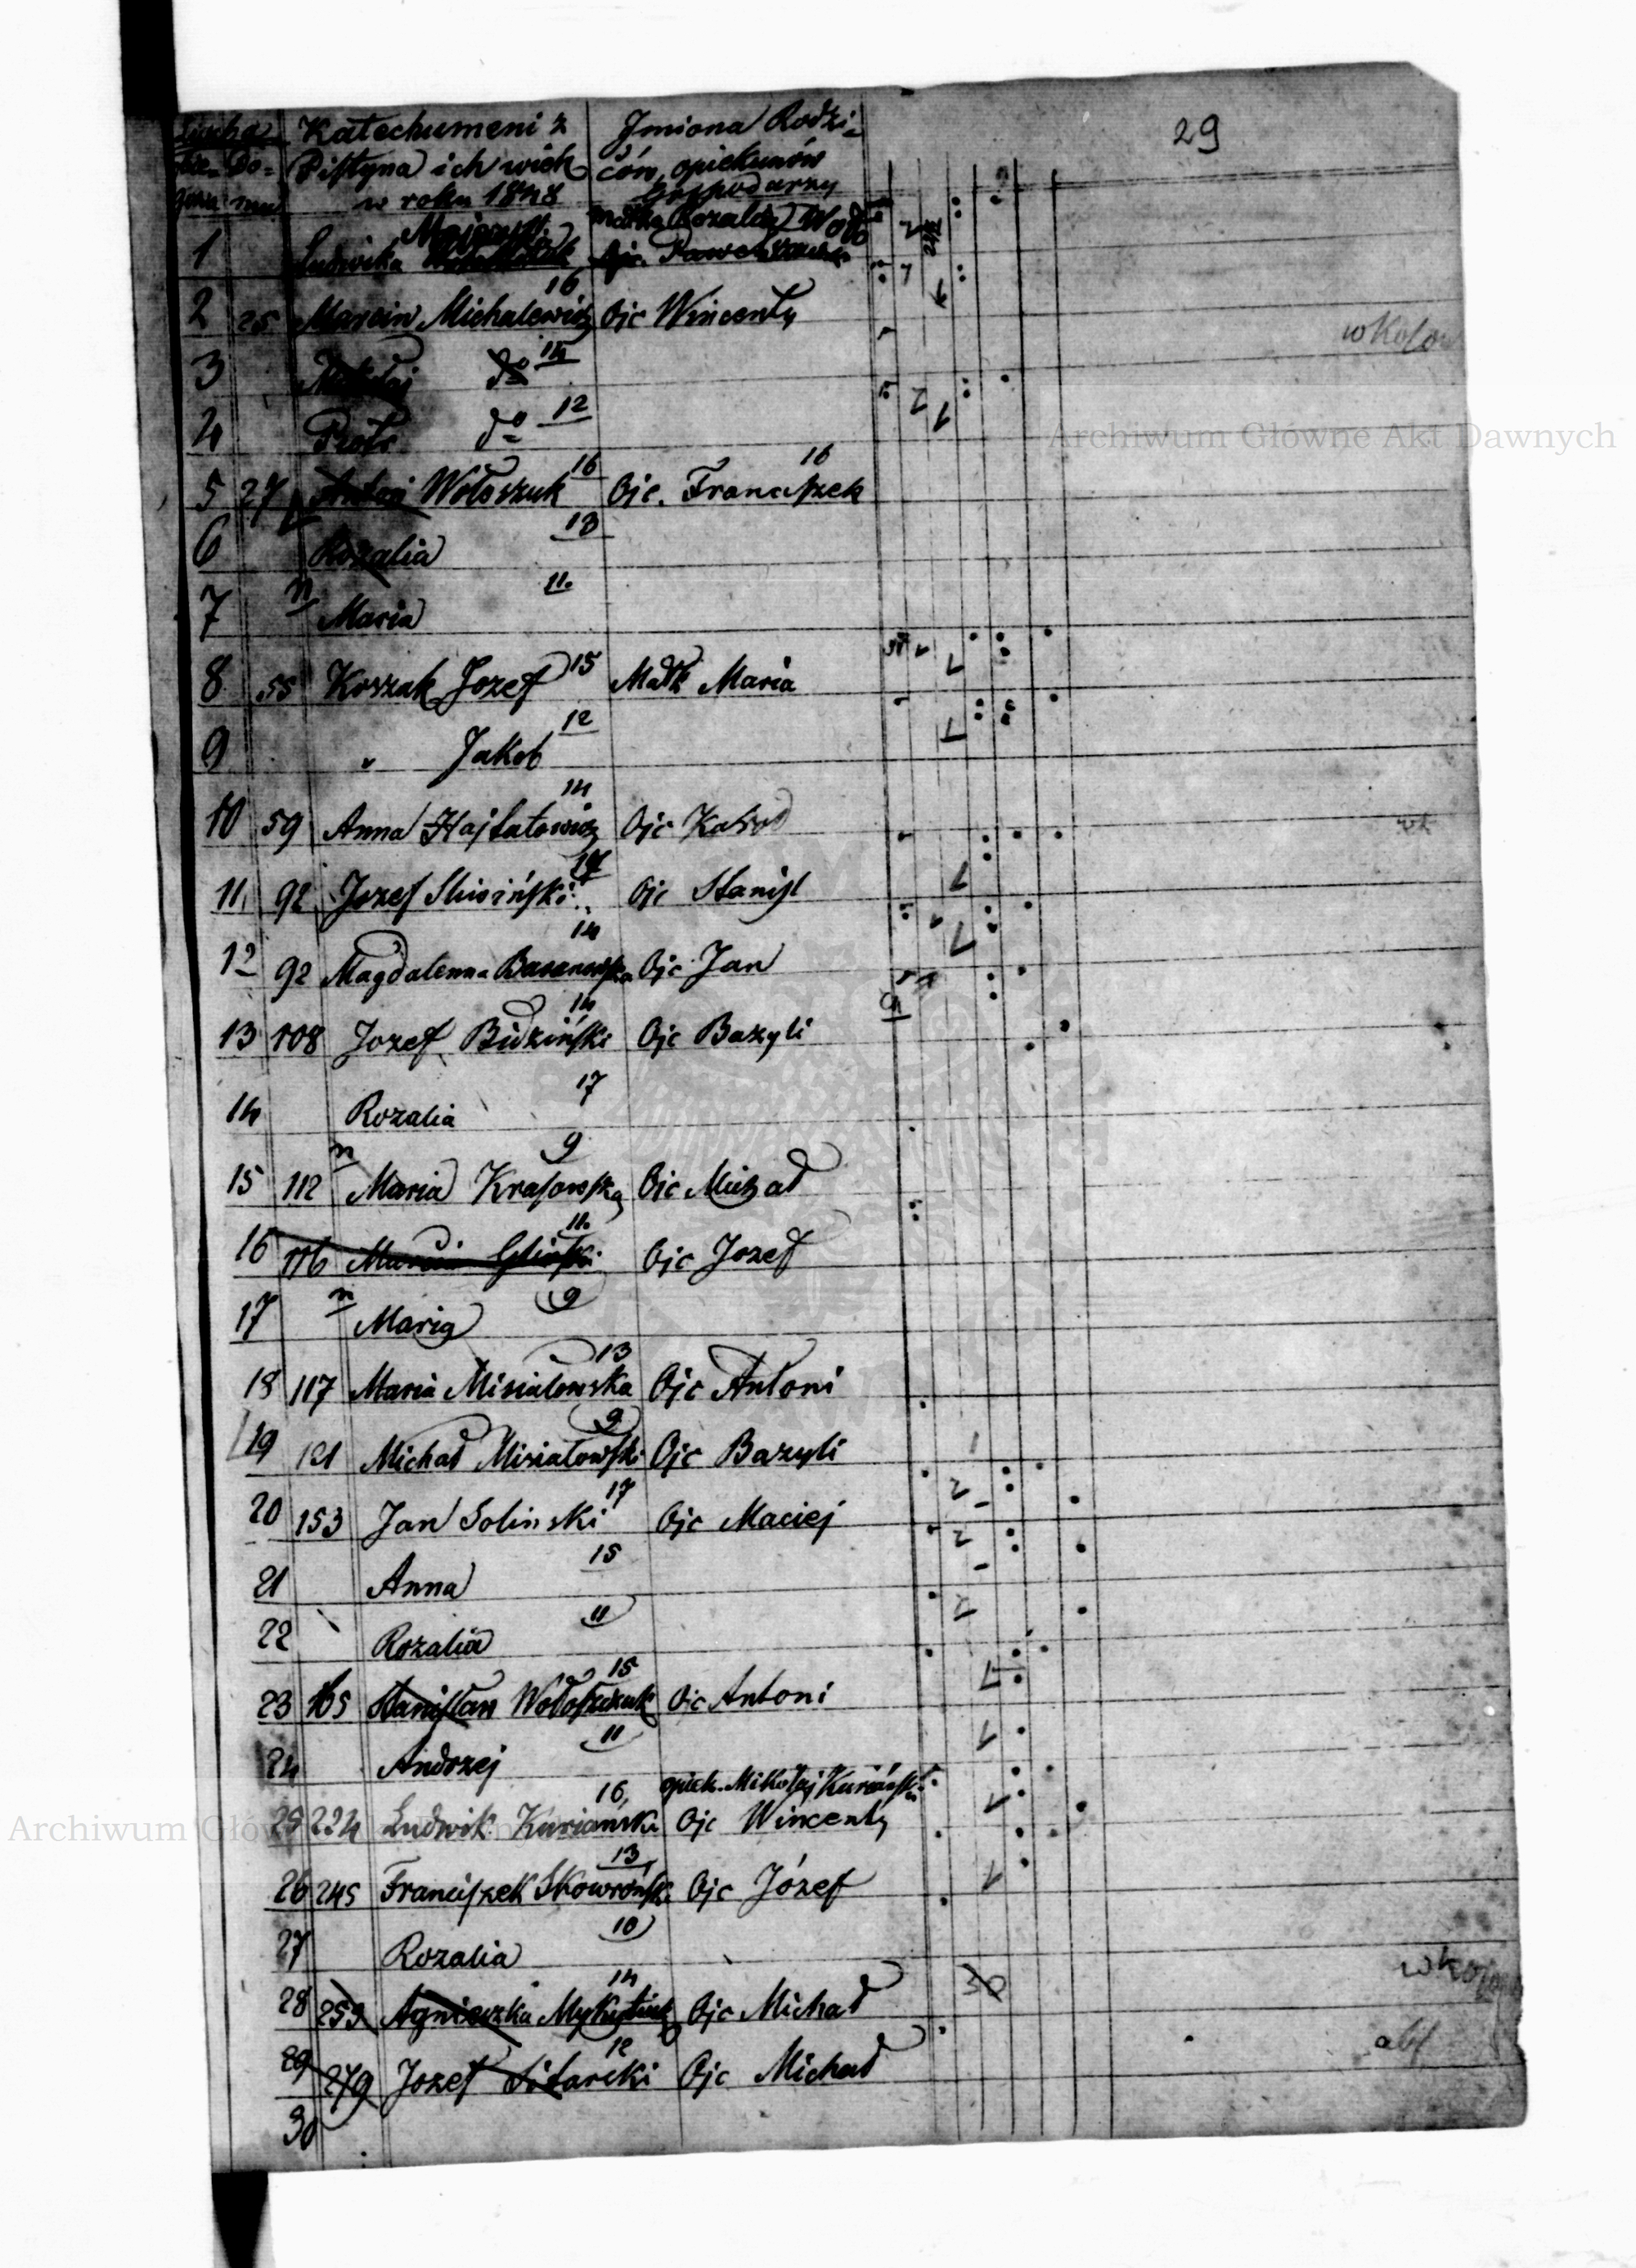 29
Liczba Katechumeni z Jmiona Rodzi-
bie- Do- Pistyna ich wiek ców, opiekunów
żąca mu w roku 1848 Gospodarzy
Matka Rozalia
1 Ludwika Ojc. Paweł
16
2 25 Marcin Michalewicz Ojc Wincenty
14
3 Mikołaj do
12
4 Piotr do
16 16
5 27 Antoni Wołoszuk Ojc. Franciszek
13
6 Rozalia
11.
7 n Maria
15
8 55 Koszak Jozef Matk Maria
12
9 " Jakob
14
10 59 Anna Hajfatowicz Ojc
11 92 Jozef Sliwiński Ojc Stanisł
14
12 92 Magdalenna Baranowska Ojc Jan
14
13 108 Jozef Bidziński Ojc Bazyli
17
14 Rozalia
9
15 112 n Maria Krasowska Ojc Michał
11.
16 116 Ojc Jozef
9
17 n Maria
13
18 117 Maria Misiałowska Ojc Antoni
9
19 121 Michał Misiałowski Ojc Bazyli
17
20 153 Jan Solinski Ojc Maciej
15
21 Anna
11
22 Rozalia
15
23 165 Stanisław Wołoszczuk Ojc Antoni
11
24 Andrzej
16 opiek. Mikołaj Kuriański
25 234 Ludwik Kuriański Ojc Wincenty
13
26 245 Franciszek Skowrońsk Ojc Józef
10
27 Rozalia
14
28 259 Agnieszka Ojc Michał
12
29 279 Jozef Sitarski Ojc Michał
30
Archiwum Główne Akt Dawnych